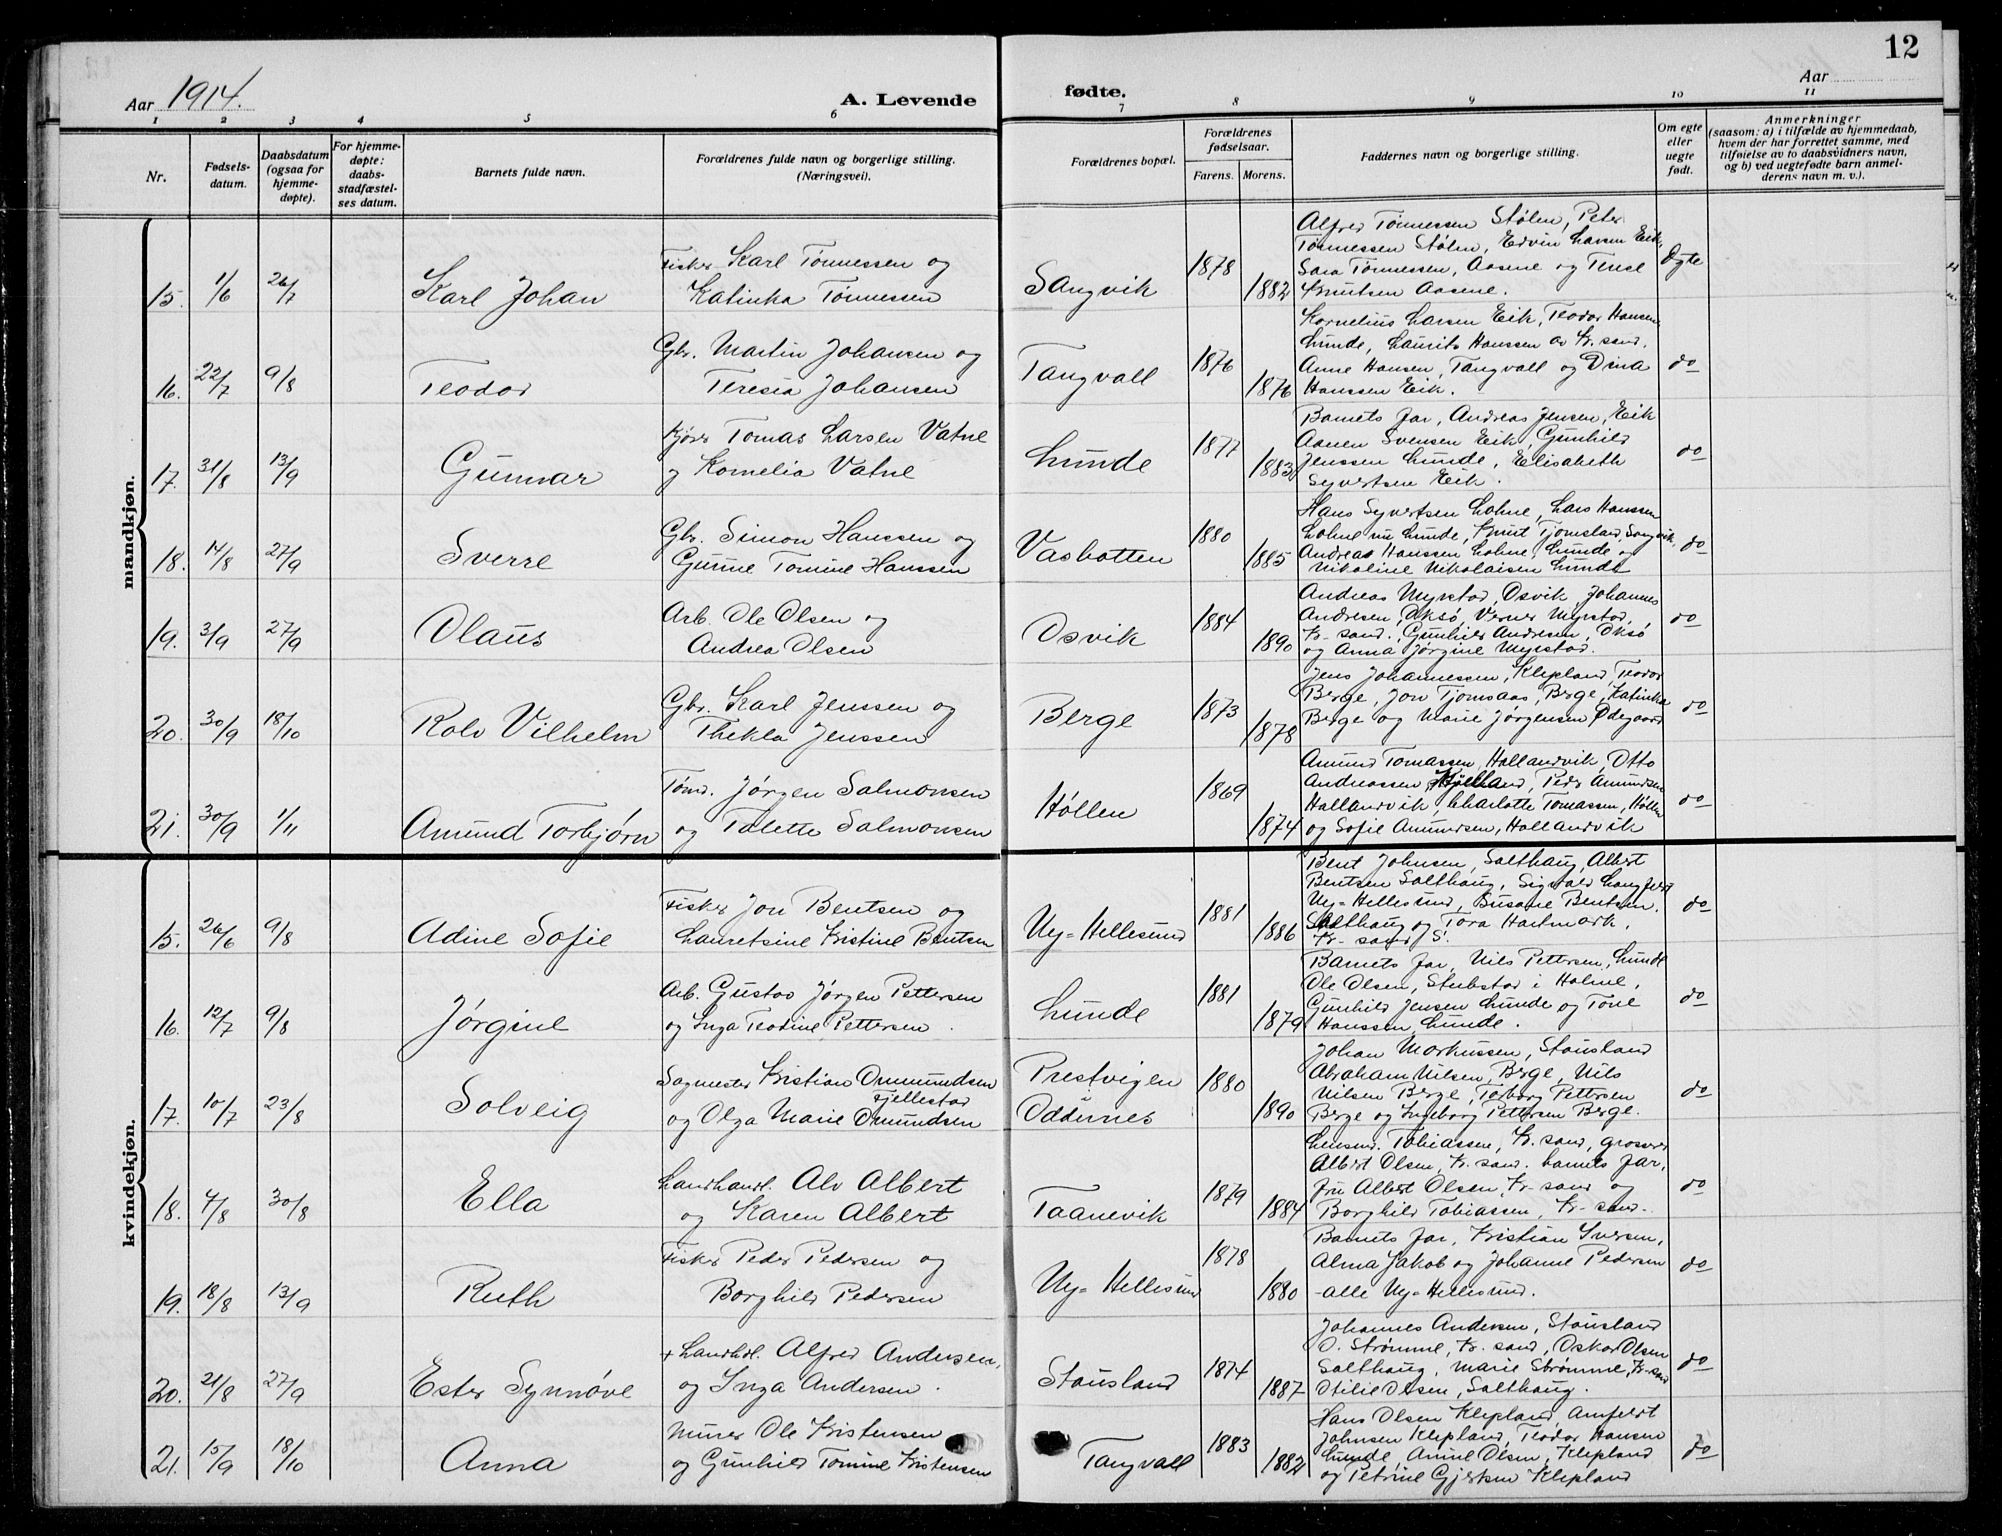 12
Aar 1914.
A. Levende
fødte.
Aar
1 2 3 4 5 6 7 8 9 10 11
Nr.
Fødsels-
datum.
Daabsdatum
(ogsaa for
hjemme-
døpte).
For hjemme-
døpte:
daabs-
stadfæstel-
ses datum.
Barnets fulde navn.
Forældrenes fulde navn og borgerlige stilling.
(Næringsvei).
Forældrenes bopæl.
Forældrenes
fødselsaar.
Farens. Morens.
Faddernes navn og borgerlige stilling.
Om egte
eller
uegte
født.
Anmerkninger
(saasom: a) i tilfælde av hjemmedaab,
hvem der har forrettet samme, med
tilføielse av to daabsvidners navn,
og b) ved uegtefødte barn anmel-
derens navn m. v.).
mandkjøn.
15. 1/6 26/7 Karl Johan
Fisker Karl Tønnessen og
Katinka Tønnessen
Sangvik 1878 1882
Alfred Tønnessen Stølen, Peter
Tønnessen Stølen, Edvin Larsen Eik,
Sara Tønnessen, Aasene og Tense
Knutsen Aasene.
Egte
16. 22/7 9/8 Teodor
Gbr. Martin Johansen og
Teresia Johansen
Tangvall 1876 1876
Kornelius Larsen Eik, Teodor Hansen
Lunde, Laurits Hanssen av Kr. sand.
Anne Hansen, Tangvall og Dina
Hanssen Eik.
do
17. 31/8 13/9 Gunnar
Kjører Tomas Larsen Vatne
og Kornelia Vatne
Lunde 1877 1883
Barnets far, Andreas Jensen, Eik
Aanen Svensen Eik, Gunhild
Jenssen Lunde, Elisabeth
Syvertsen Eik.
do
18. 14/8 27/9 Sverre
Gbr. Simon Hanssen og
Gunne Tomine Hanssen
Vasbotten 1880 1885
Hans Syvertsen Lohne, Lars Hanssen
Lohne nu Lunde, Knut Tjomsland Sangvik,
Andreas Hanssen Lohne, Lunde og
Nikoline Nikolaisen Lunde
do
19. 3/9 27/9 Olaus
Arb. Ole Olsen og
Andrea Olsen
Osvik 1884 1890
Andreas Myrstad, Osvik, Johannes
Andresen, Oksø, Verner Myrstad,
Kr-sand., Gunhild Andresen, Oksø
og Anna Jørgine Myrstad.
do
20. 30/9 18/10 Rolv Vilhelm
Gbr. Karl Jenssen og
Thekla Jenssen
Berge 1873 1878
Jens Johannessen, Klepland, Teodor
Berge, Jon Tjomsaas, Berge, Katinka
Berge og Marie Jørgensen Ødegaard
do
21. 30/9 1/11 Amund Torbjørn
Tømd. Jørgen Salmonsen
og Talette Salmonsen
Høllen 1869 1874
Amund Tomassen, Hallandvik, Otto
Andreassen, Peder Amundsen
Hallandvik, Charlotte Tomassen, Høllen
og Sofie Amundsen, Hallandvik
do
kvindekjøn.
15. 26/6 9/8 Adine Sofie
Fisker Jon Bentsen og
Lauretsine Kristine Bentsen
Ny-Hellesund 1881 1886
Bent Johnsen, Salthaug, Albert
Bentsen Salthaug, Sigvald Langfeldt
Ny-Hellesund, Susane Bentsen,
Salthaug og Tora Hartmark,
Kr-sand S.
do
16. 12/7 9/8 Jørgine
Arb. Gustav Jørgen Pettersen
og Inga Teodine Pettersen.
Lunde 1881 1879
Barnets far, Nils Pettersen, Lunde
Ole Olsen, Stubstad i Holme,
Gunhild Jensen Lunde og Tone
Hanssen, Lunde.
do
17. 10/7 23/8 Solveig
Sagmester Kristian Ommundsen
Fjellestad
og Olga Marie Omundsen
Prestvigen
Oddernes
1880 1890
Johan Markussen, Stausland
Abraham Nilsen, Berge, Nils
Nilsen Berge, Torborg Pettersen
Berge og Ingeborg Pettersen Berge.
do
18. 4/8 30/8 Ella
Landhandl. Alv Albert
og Karen Albert
Taanevik 1879 1884
Lensmd. Tobiassen, Kr. sand, grosserer
Albert Olsen, Kr. sand. barnets far,
fru Albert Olsen, Kr-sand og
Borghild Tobiassen, Kr-sand.
do
19. 18/8 13/9 Ruth
Fisker Peder Pedersen og
Borghild Pedersen
Ny-Hellesund 1878 1880
Barnets far, Kristian Iversen,
Alma Jakob og Johanne Pedersen
- alle Ny-Hellesund.
do
20. 21/8 27/9 Ester Synnøve
+ Landhdl. Alfred Andersen,
og Inga Andersen.
Stausland 1874 1887
Johannes Andersen, Stausland
O. Strømme, Kr. sand, Oskar Olsen
Salthaug, Marie Strømme, Kr-sand
Otilie Olsen, Salthaug.
do
21. 15/9 18/10 Anna
Murer Ole Kristensen
og Gunhild Tomine Kristensen
Tangvall 1883 1882
Hans Olsen Klepland, Amfeldt
Johnsen Klepland, Teodor Hansen
Lunde, Anne Olsen, Klepland
og Petrine Gjertsen Klepland
do